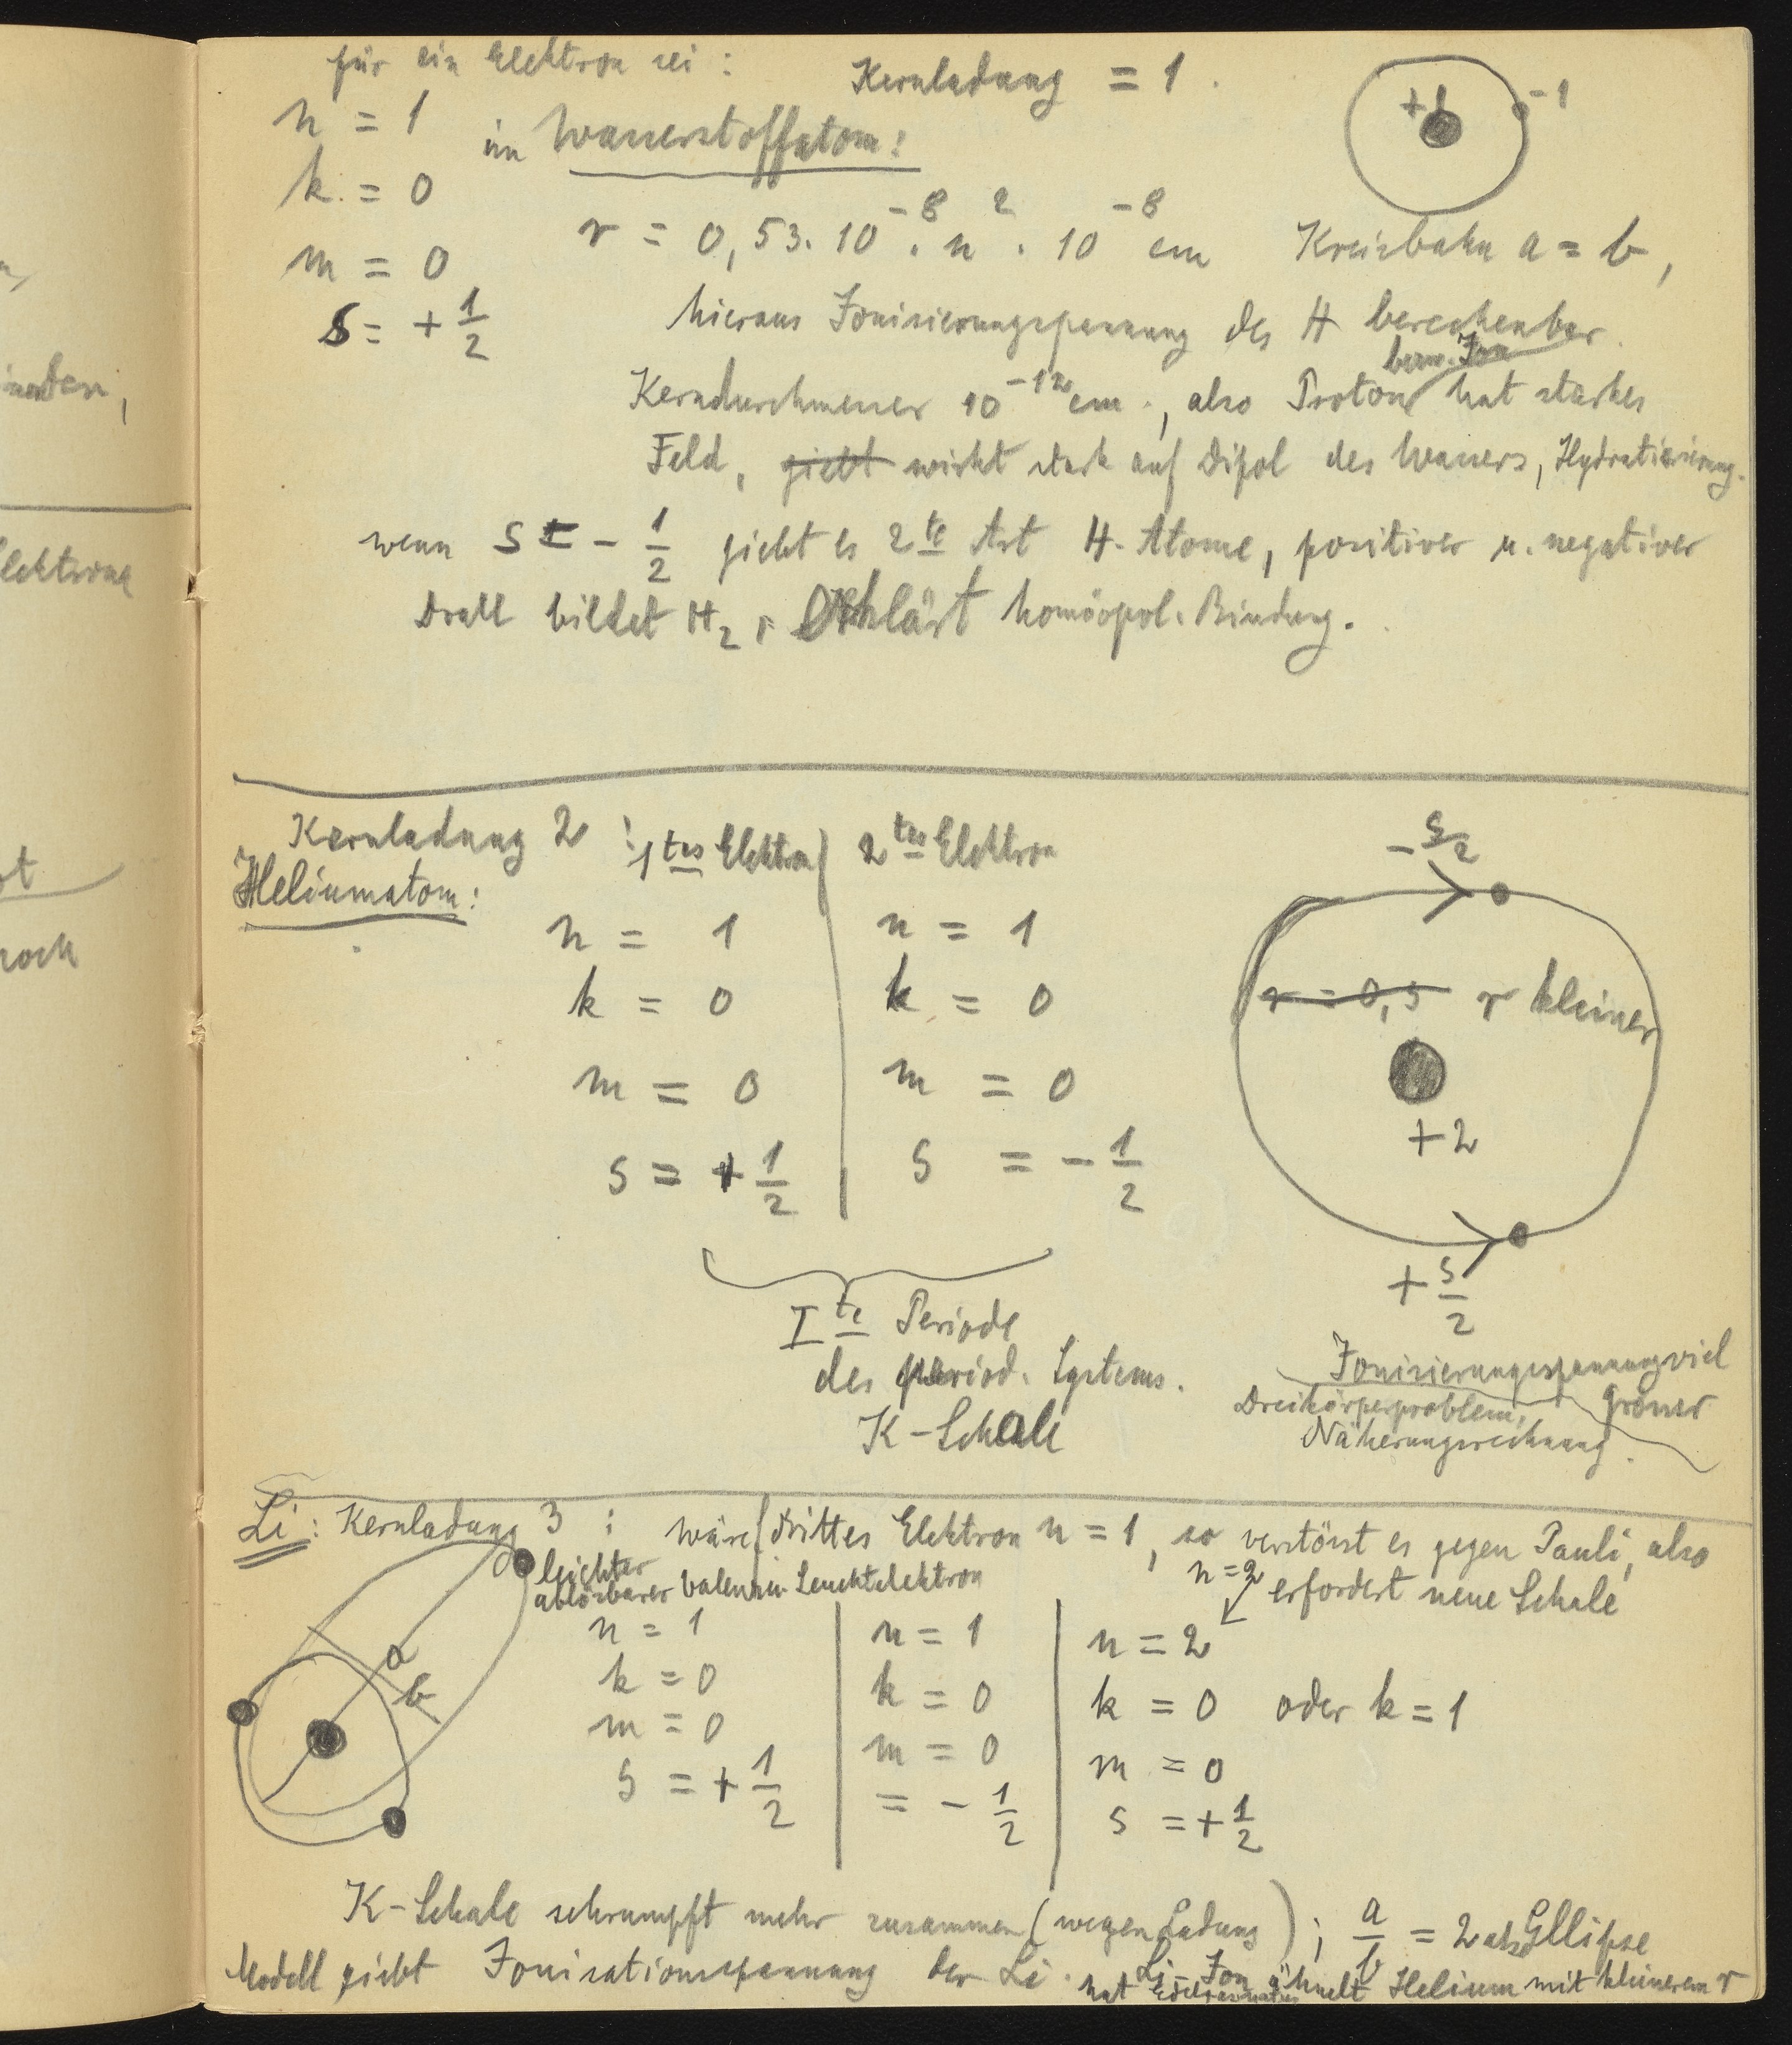 für ein Elektron sei :
Kernladung = 1 .
+1
-1
n = 1
im Wasserstoffatom :
k = 0
r = 0,53. 10^-8 . n^2 . 10^-8 cm
Kreisbahn a = b ,
m = 0
s = + 1/2
hieraus Jonisierungsspannung des H berechenbar
bezw. Jon
Kerndurchmesser 10^-12 cm . , also Proton hat starkes
Feld , giebt wirkt stark auf Dipol des Wassers , Hydratisierung.
wenn s = - 1/2 giebt es 2te Art H-Atome , positiver u. negativer
Drall bildet H2 , erklärt homöopol. Bindung .
Kernladung 2 :
1tes Elektron
2tes Elektron
Heliumatom :
n = 1
n = 1
k = 0
k = 0
m = 0
m = 0
s = + 1/2
s = - 1/2
- s/2
r = 0,5 r kleiner
+2
+ s/2
Ite Periode
des period. Systems .
K-Schale
Jonisierungsspannung viel
grösser
Dreikörperproblem ,
Näherungsrechnung .
Li : Kernladung 3 : wäre drittes Elektron n = 1 , so verstösst es gegen Pauli , also
n = 2
erfordert neue Schale
leichter
ablösbares Leuchtelektron
a
b
n = 1
n = 1
n = 2
k = 0
k = 0
k = 0 oder k = 1
m = 0
m = 0
m = 0
s = + 1/2
= - 1/2
s = + 1/2
K-Schale schrumpft mehr zusammen ( wegen Ladung ) ; a/b = 2 als Ellipse
Modell giebt Jonisationsspannung der Li . Li-Jon ähnelt Helium mit kleinerem r
hat